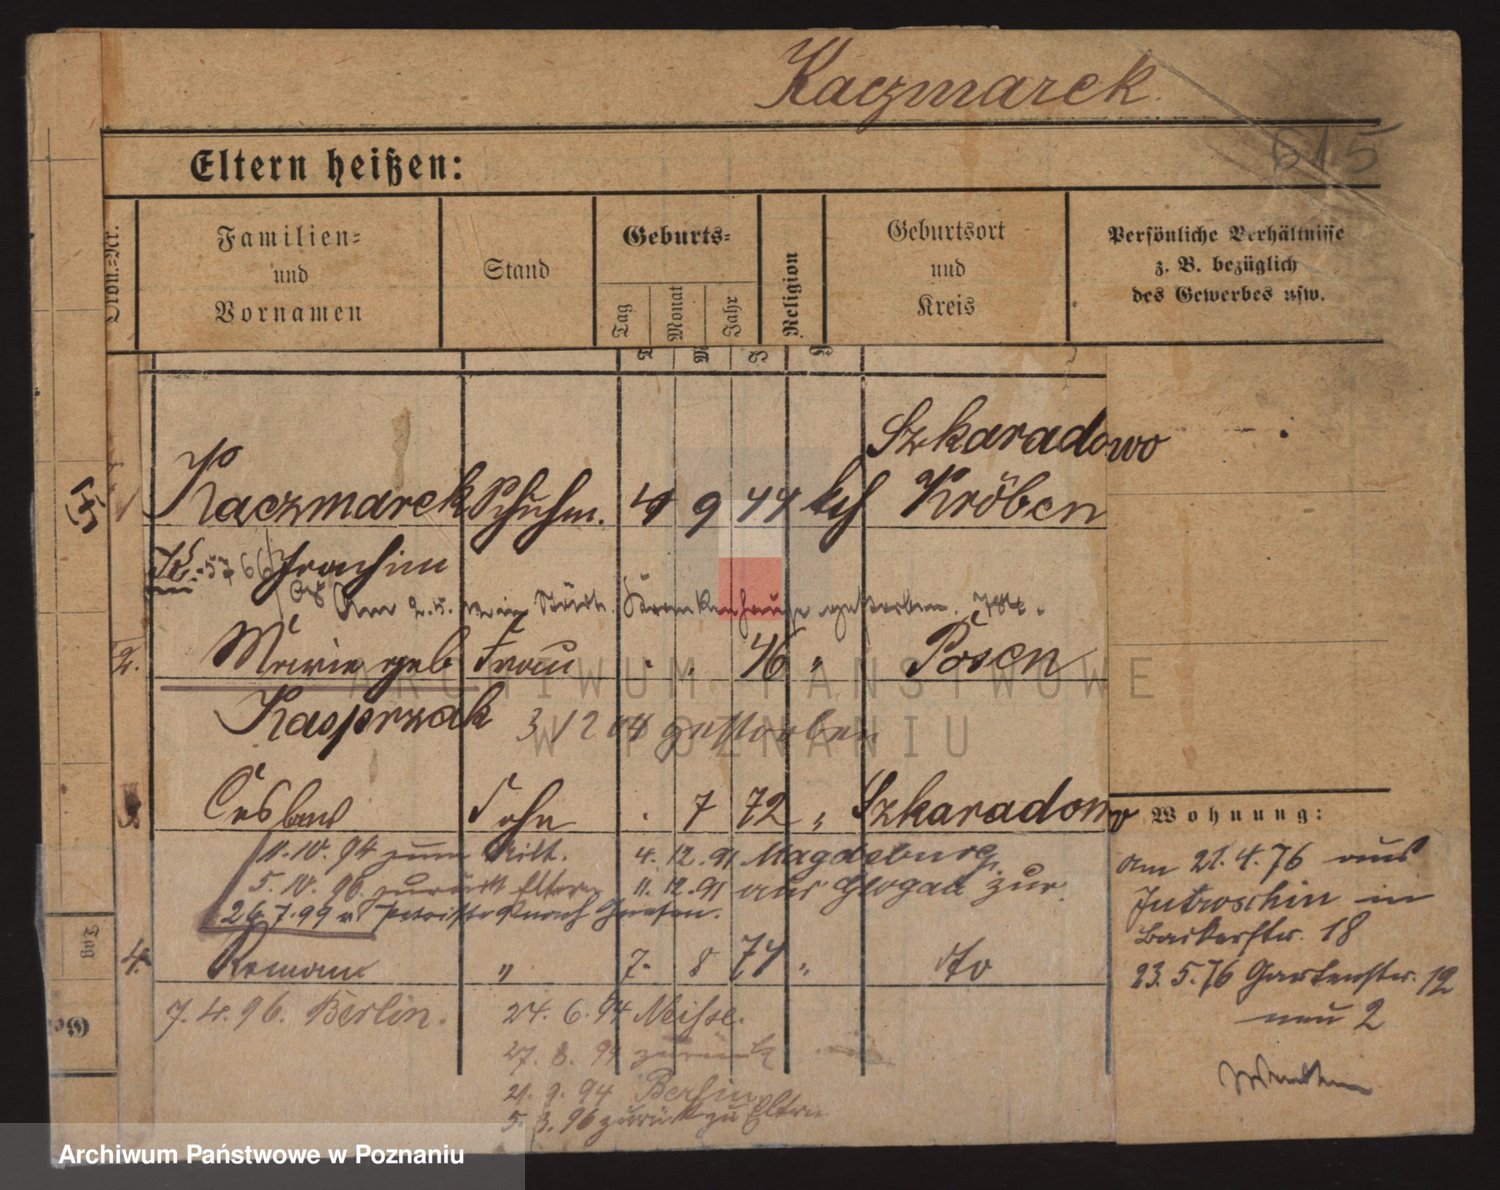 Kaczmarek
615
Eltern heißen:
Ordn.-Nr.
Familien-
und
Vornamen
Stand
Geburts-
Tag
Monat
Jahr
Religion
Geburtsort
und
Kreis
Persönliche Verhältnisse
z. B. bezüglich
des Gewerbes usw.
Szkaradowo
Kaczmarek Schuhm. 9 44 kth Kröben
Joachim
Am 2.5. Städt. Krankenhause gestorben.
2. Marie geb. Frau " 46 " Posen
Kasprzak 3/12 04 gestorben
3. Ceslaus Sohn . 7 72 " Szkaradowo
11.10.94 zum Milt. 4.12.91 Magdeburg
5.10.96 zurück Eltern 11.12.91 aus Glogau zur.
26.7.99 n. Gnesen.
4. Roman " 7. 8 74 " do
7.4.96. Berlin. 24.6.94 Neisse.
27.8.94 zurück
21.9.94 Berlin
5.3.96 zurück zu Eltern
Wohnung:
Am 21.4.76 aus
Jutroschin in
Bäckerstr. 18
23.5.76 Gartenstr. 12
neu 2
Tag
ARCHIWUM PAŃSTWOWE
W POZNANIU
Archiwum Państwowe w Poznaniu